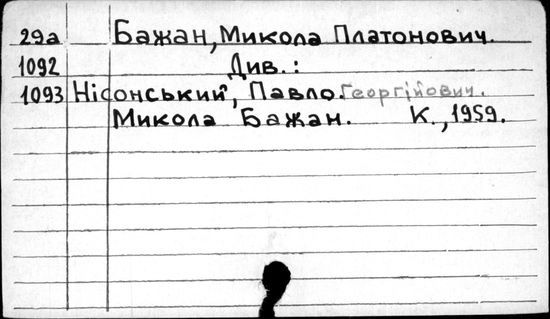 29а Бажан, Микола Платонович.
1092 Див.:
1093 Нісонський, Павло Георгійович.
Микола Бажан. К., 1959.